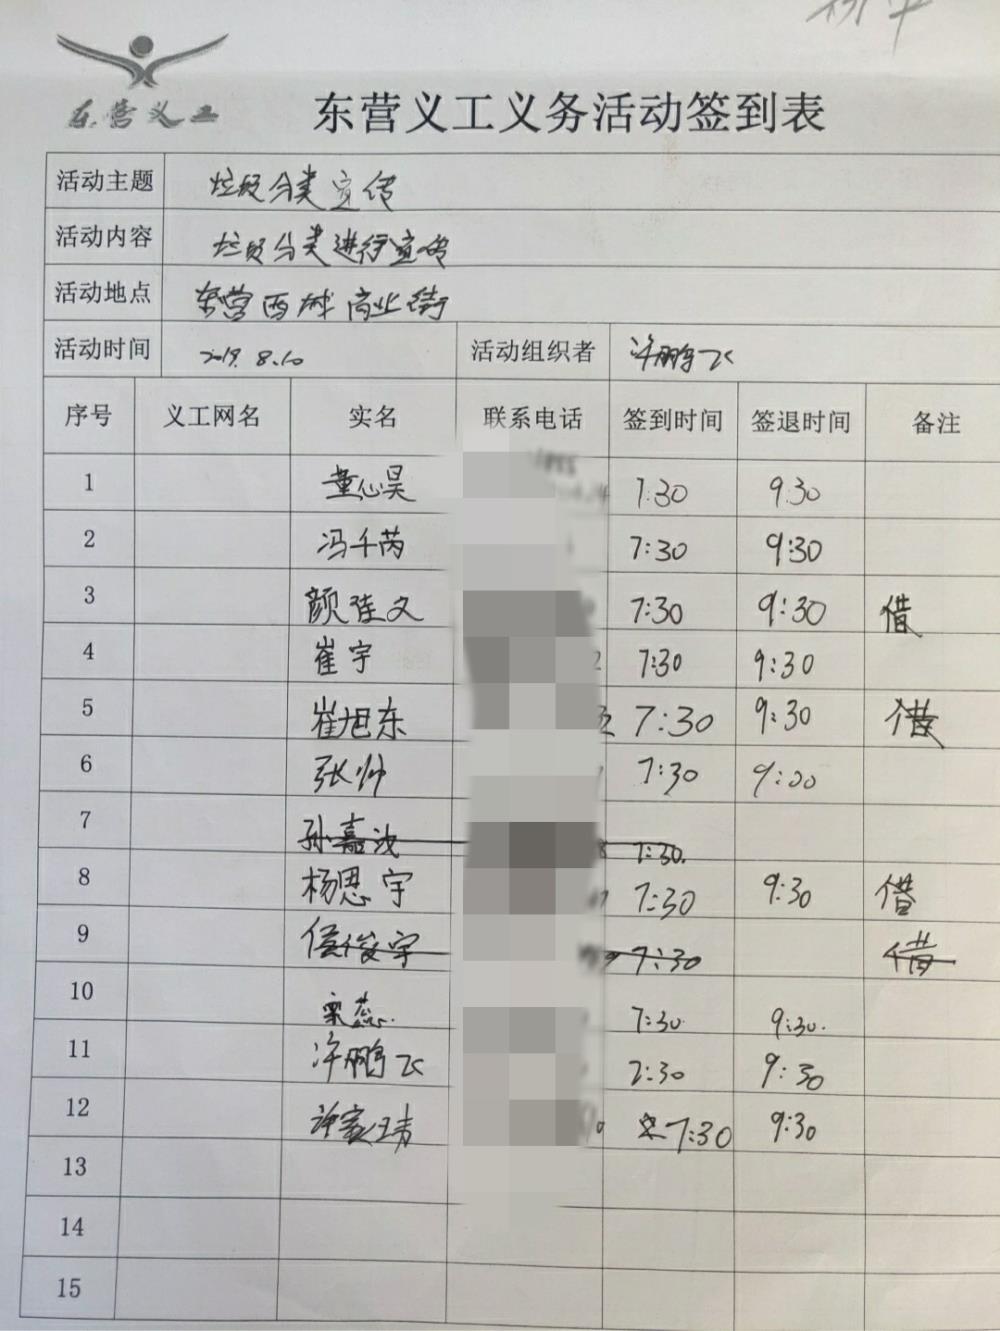 东营义工
东营义工义务活动签到表
活动主题 垃圾分类宣传
活动内容 垃圾分类进行宣传
活动地点 东营西城商业街
活动时间 2019.8.10 活动组织者 许鹏飞
序号 义工网名 实名 联系电话 签到时间 签退时间 备注
1 董心昊 7:30 9:30
2 冯千芮 7:30 9:30
3 颜佳文 7:30 9:30 借
4 崔宇 7:30 9:30
5 崔旭东 7:30 9:30 借
6 张帅 7:30 9:00
7 孙嘉 7:30.
8 杨恩宇 7:30 9:30 借
9 侯俊宇 7:30 借
10 栗蕊 7:30 9:30.
11 许鹏飞 7:30 9:30
12 许家 7:30 9:30
13
14
15